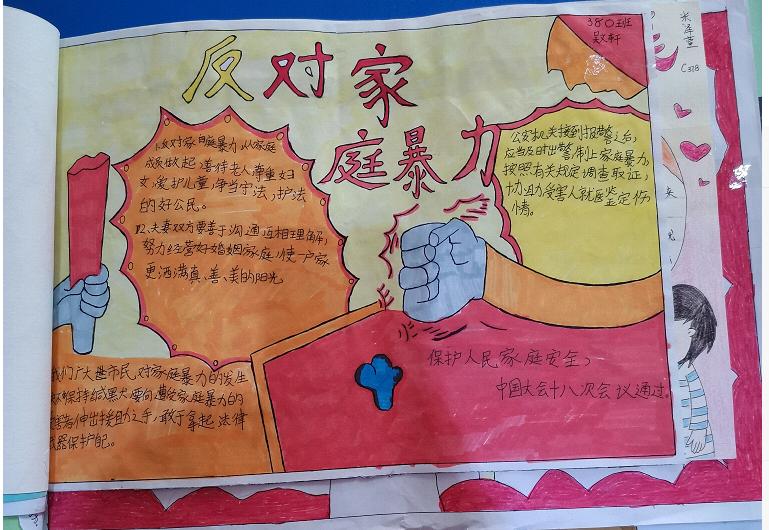 反对家
庭暴力
380班
1.反对家庭暴力,从家庭
成员做起,善待老人,尊重妇
女,爱护儿童,争当守法,护法
的好公民。
2.夫妻双方要善于沟通互相理解,
努力经营好婚姻家庭,使一户家
更洒满真、善、美的阳光。
公安机关接到报警之后,
应当及时出警,制止家庭暴力,
按照有关规定调查取证,
协助受害人就医鉴定伤
情。
我们广大市民,对家庭暴力的发生
保持
伸出援助之手,敢于拿起法律
武器保护自己。
保护人民家庭安全,
中国大会十八次会议通过。
米泽萱
C378